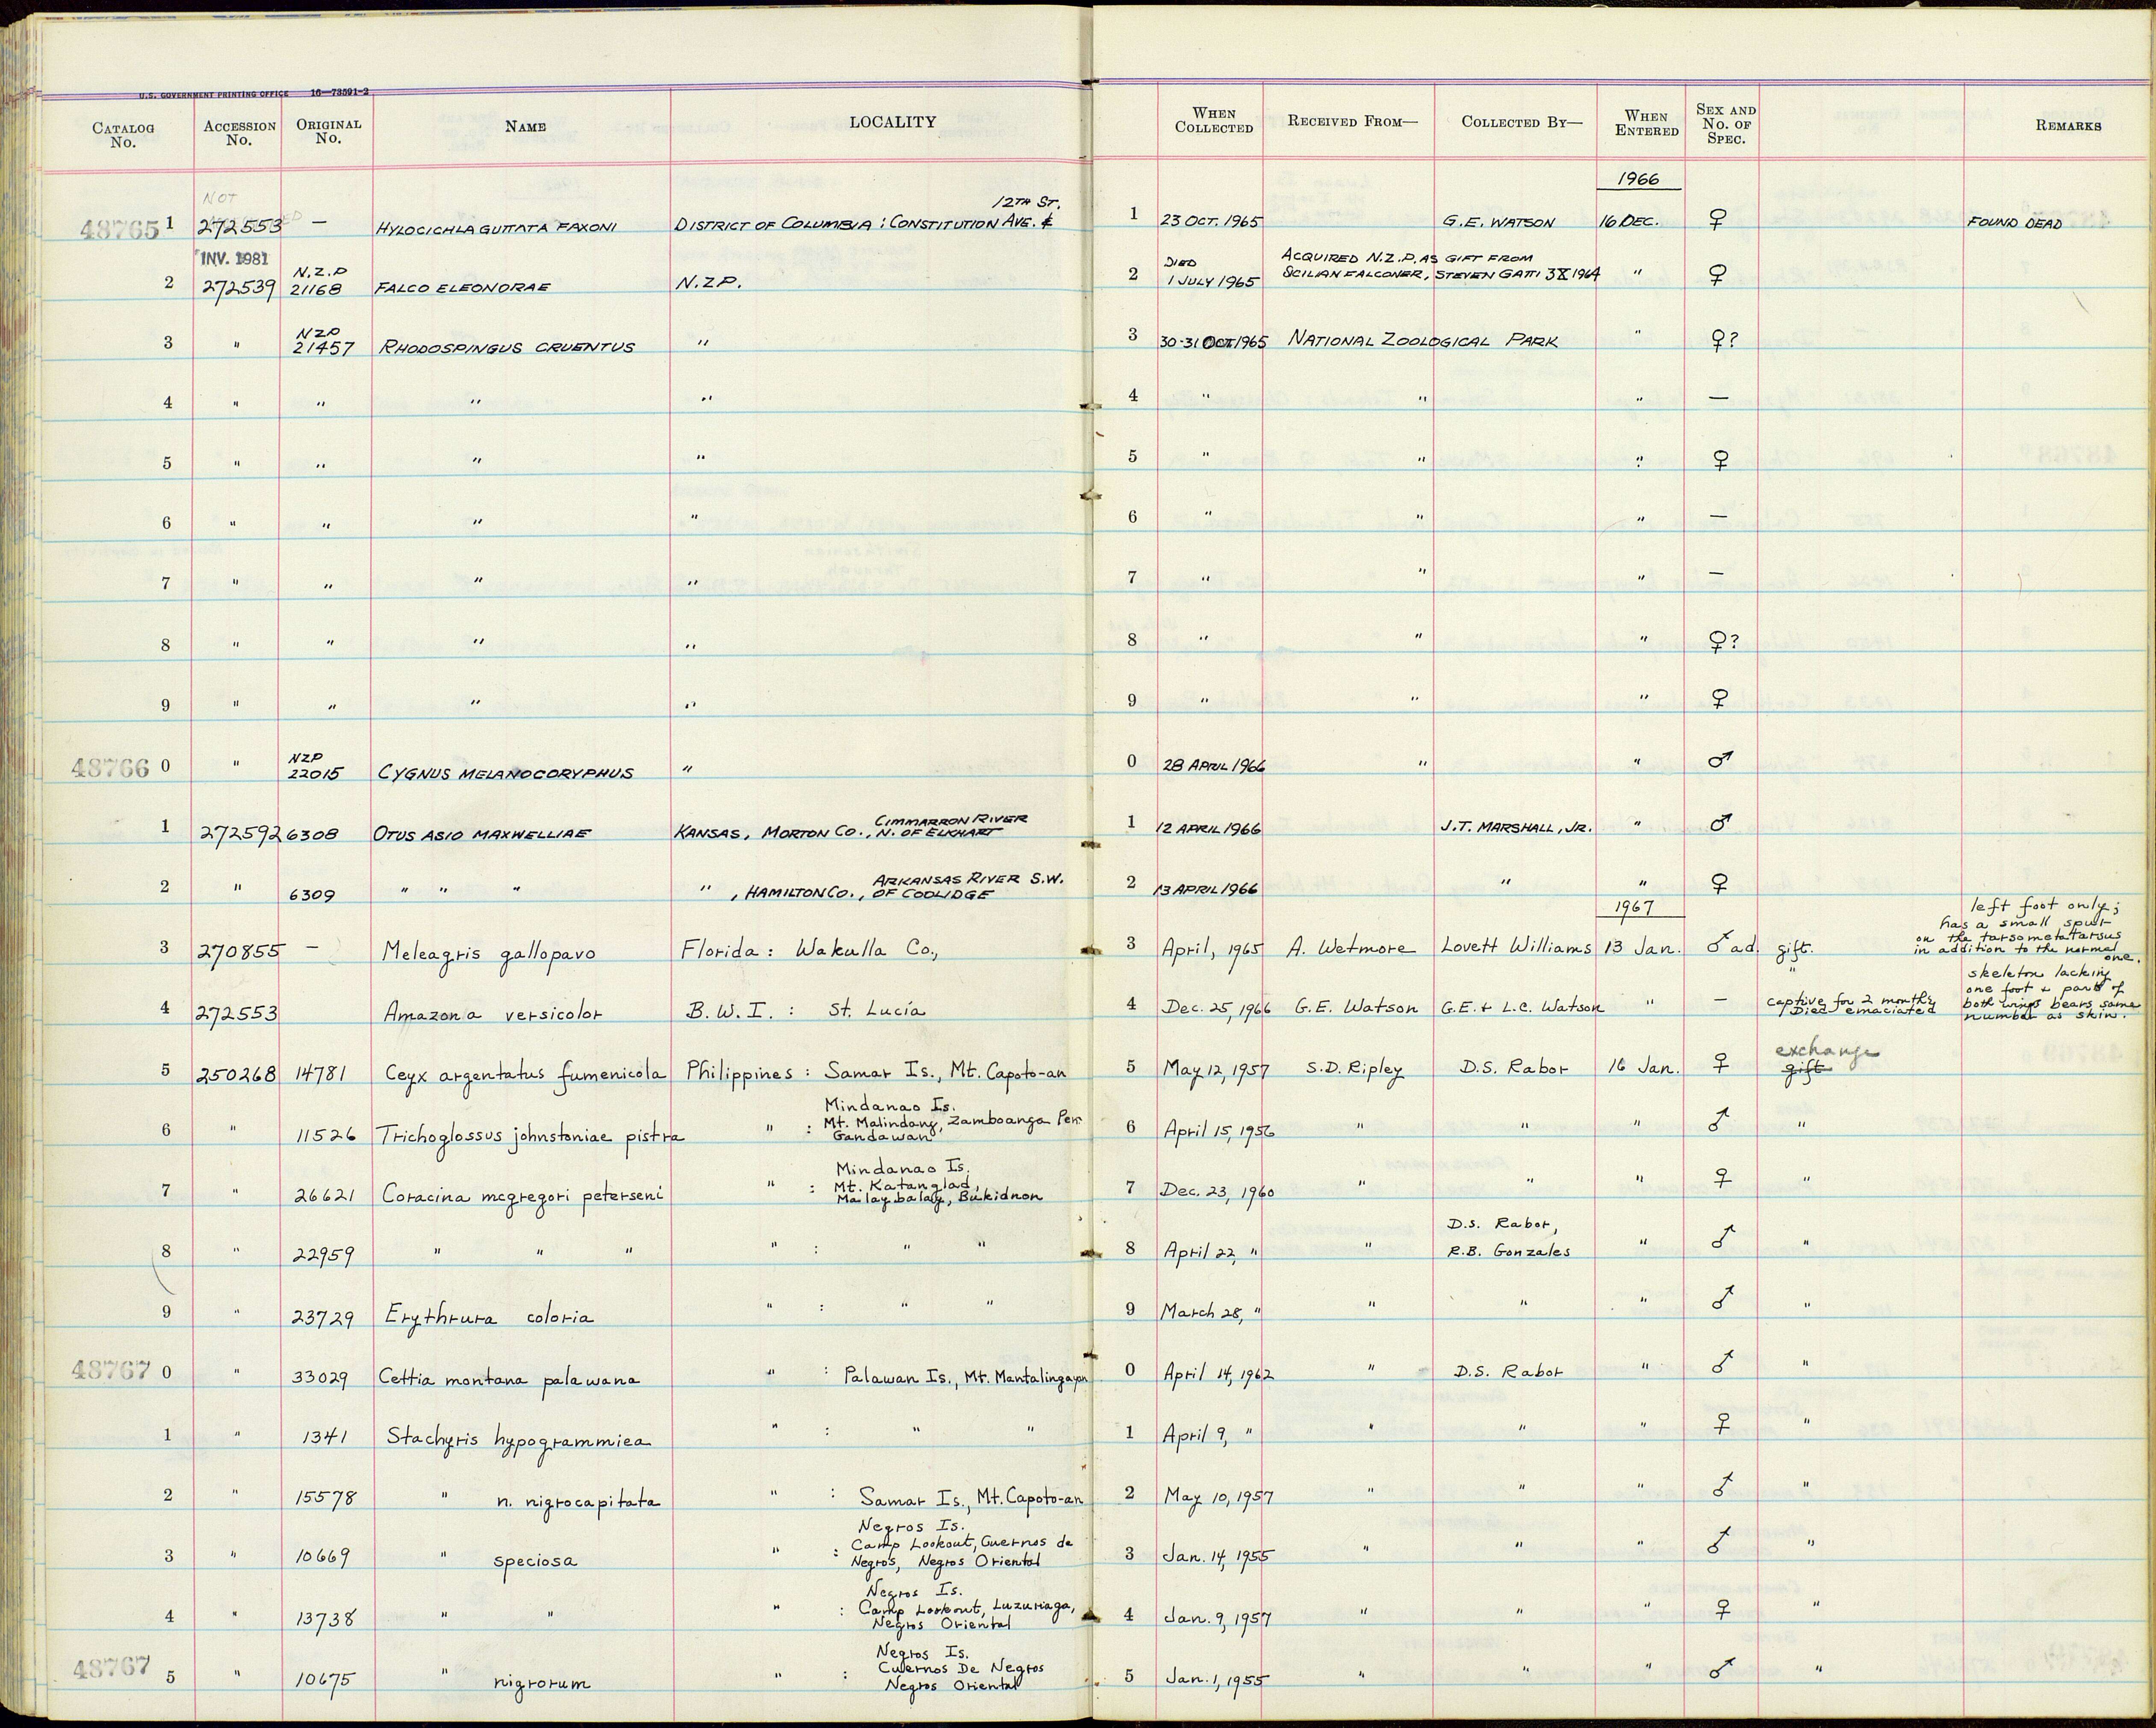 U.S. GOVERNMENT PRINTING OFFICE 16—73591-2
CATALOG No. ACCESSION No. ORIGINAL No. NAME LOCALITY WHEN COLLECTED RECEIVED FROM— COLLECTED BY— WHEN ENTERED SEX AND No. OF SPEC. REMARKS
1966
NOT
12TH ST.
48765 1 272553 — HYLOCICHLA GUTTATA FAXONI DISTRICT OF COLUMBIA : CONSTITUTION AVE. & 1 23 OCT. 1965 G.E. WATSON 16 DEC. ♀ FOUND DEAD
INV. 1981
N.Z.P DIED ACQUIRED N.Z.P. AS GIFT FROM
2 272539 21168 FALCO ELEONORAE N.Z.P. 2 1 JULY 1965 SCILIAN FALCONER, STEVEN GATTI 3 X 1964 " ♀
NZP
3 " 21457 RHODOSPINGUS CRUENTUS " 3 30-31 OCT 1965 NATIONAL ZOOLOGICAL PARK " ♀?
4 " " " " 4 " " " —
5 " " " " 5 " " " ♀
6 " " " " 6 " " " —
7 " " " " 7 " " " —
8 " " " " 8 " " " ♀?
9 " " " " 9 " " " ♀
NZP
48766 0 " 22015 CYGNUS MELANOCORYPHUS " 0 28 APRIL 1966 " " ♂
CIMMARRON RIVER
1 272592 6308 OTUS ASIO MAXWELLIAE KANSAS, MORTON CO., N. OF ELKHART 1 12 APRIL 1966 J.T. MARSHALL, JR. " ♂
ARKANSAS RIVER S.W.
2 " 6309 " " " " , HAMILTON CO., OF COOLIDGE 2 13 APRIL 1966 " " ♀
1967
left foot only;
has a small spur
on the tarsometatarsus
in addition to the normal
one.
3 270855 — Meleagris gallopavo Florida : Wakulla Co., 3 April, 1965 A. Wetmore Lovett Williams 13 Jan. ♂ ad. gift.
"
skeleton lacking
one foot & parts of
both wings bears same
number as skin.
4 272553 Amazona versicolor B.W.I. : St. Lucia 4 Dec. 25, 1966 G.E. Watson G.E. & L.C. Watson " — captive for 2 months
Died emaciated
exchange
5 250268 14781 Ceyx argentatus fumenicola Philippines : Samar Is., Mt. Capoto-an 5 May 12, 1957 S.D. Ripley D.S. Rabor 16 Jan. ♀ gift
Mindanao Is.
6 " 11526 Trichoglossus johnstoniae pistra " : Mt. Malindang, Zamboanga Pen 6 April 15, 1956 " " " ♂ "
Gandawan
Mindanao Is.
7 " 26621 Coracina mcgregori peterseni " : Mt. Katanglad, 7 Dec. 23, 1960 " " " ♀ "
Malaybalay, Bukidnon
D.S. Rabor,
8 " 22959 " " " " : " " 8 April 22, " " R.B. Gonzales " ♂ "
9 " 23729 Erythrura coloria " : " " 9 March 28, " " " " ♂ "
48767 0 " 33029 Cettia montana palawana " : Palawan Is., Mt. Mantalingayan 0 April 14, 1962 " D.S. Rabor " ♂ "
1 " 1341 Stachyris hypogrammica " : " " 1 April 9, " " " " ♀ "
2 " 15578 " n. nigrocapitata " : Samar Is., Mt. Capoto-an 2 May 10, 1957 " " " ♂ "
Negros Is.
3 " 10669 " speciosa " : Camp Lookout, Cuernos de 3 Jan. 14, 1955 " " " ♂ "
Negros, Negros Oriental
Negros Is.
4 " 13738 " " " : Camp Lookout, Luzuriaga, 4 Jan. 9, 1957 " " " ♀ "
Negros Oriental
Negros Is.
48767 5 " 10675 " nigrorum " : Cuernos De Negros 5 Jan. 1, 1955 " " " ♂ "
Negros Oriental